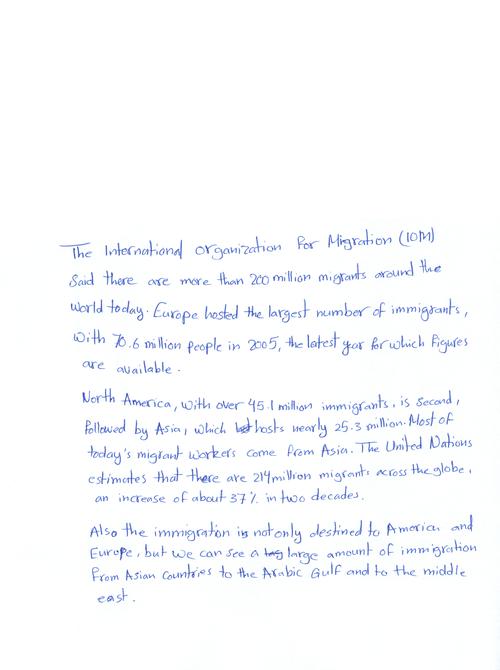 The International Organization for Migration (IOM)
Said there are more than 200 million migrants around the
world today. Europe hosted the largest number of immigrants,
with 70.6 million people in 2005, the latest year for which figures
are available.
North America, with over 45.1 million immigrants, is second,
followed by Asia, which hosts nearly 25.3 million. Most of
today's migrant workers come from Asia. The United Nations
estimates that there are 214 million migrants across the globe,
an increase of about 37% in two decades.
Also the immigration is not only destined to America and
Europe, but we can see a large amount of immigration
From Asian Countries to the Arabic Gulf and to the middle
east.